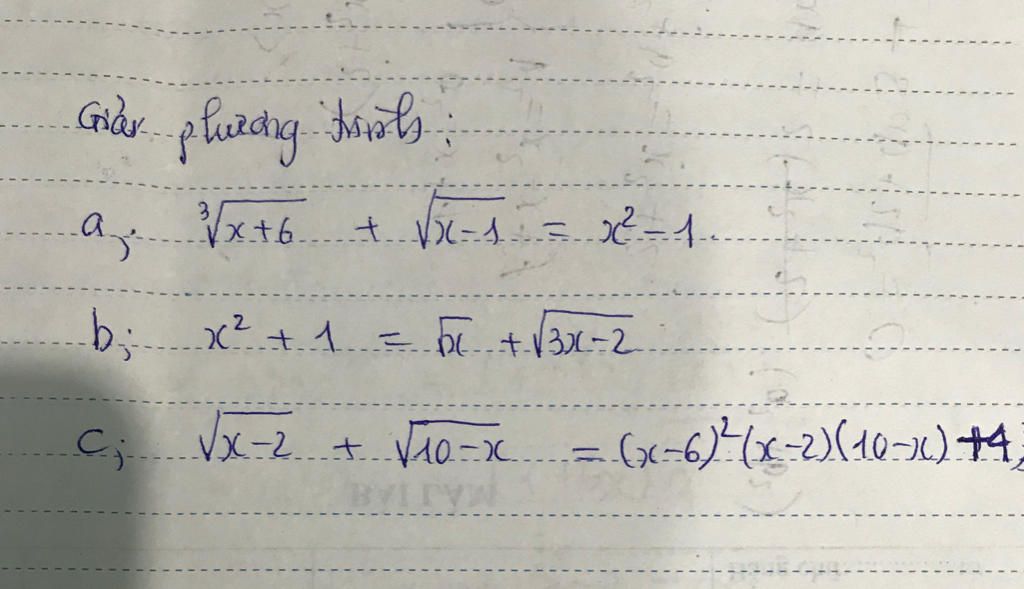 Giải phương trình:
a, ∛(x+6) + √(x-1) = x² - 1.
b; x² + 1 = √x + √(3x-2)
c; √(x-2) + √(10-x) = (x-6)²(x-2)(10-x) +4;
BÀI LÀM